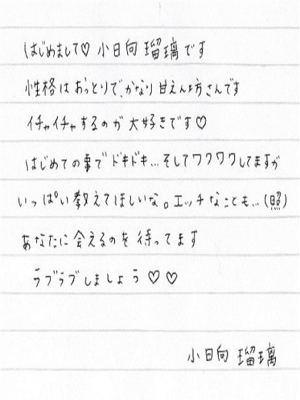 はじめまして♡ 小日向 瑠璃です
性格はおっとりで、かなり甘えん坊さんです
イチャイチャするのが大好きです♡
はじめての事でドキドキ…そしてワクワクしてますが
いっぱい教えてほしいな。エッチなことも…(照)
あなたに会えるのを待ってます
ラブラブしましょう♡♡
小日向 瑠璃